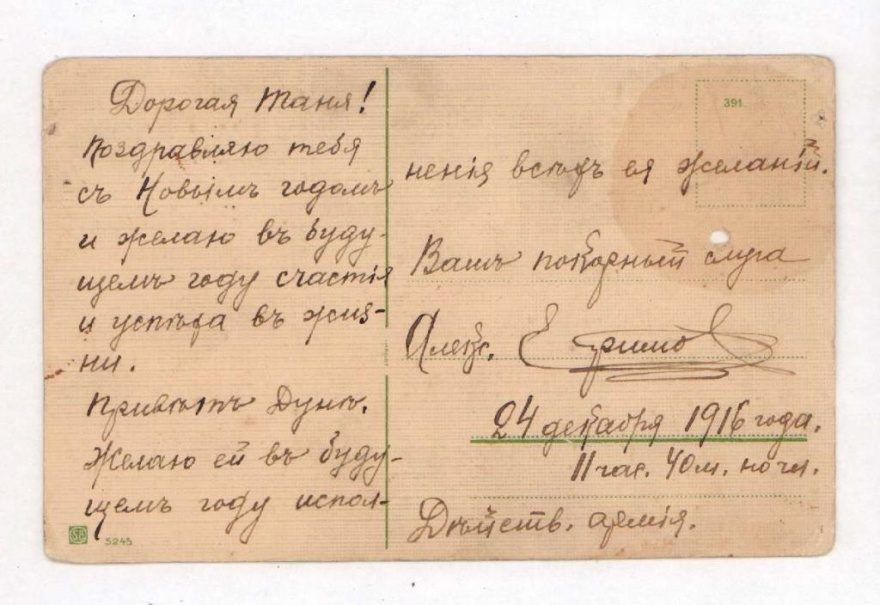 Дорогая Таня!
Поздравляю тебя
съ Новымъ годомъ
и желаю въ буду-
щемъ году счастія
и успѣха въ жиз-
ни.
Привѣтъ Дунѣ.
Желаю ей въ буду-
щемъ году испол-
5245
391
ненія всѣхъ ея желаній.
Вашъ покорный слуга
Алекс.
24 декабря 1916 года.
11 час. 40 м. ночи.
Дѣйств. армія.